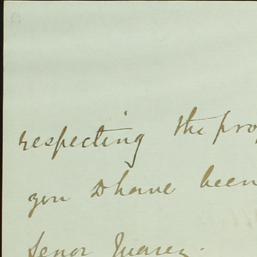 respecting the pro
you & have been
Senor Juarez.